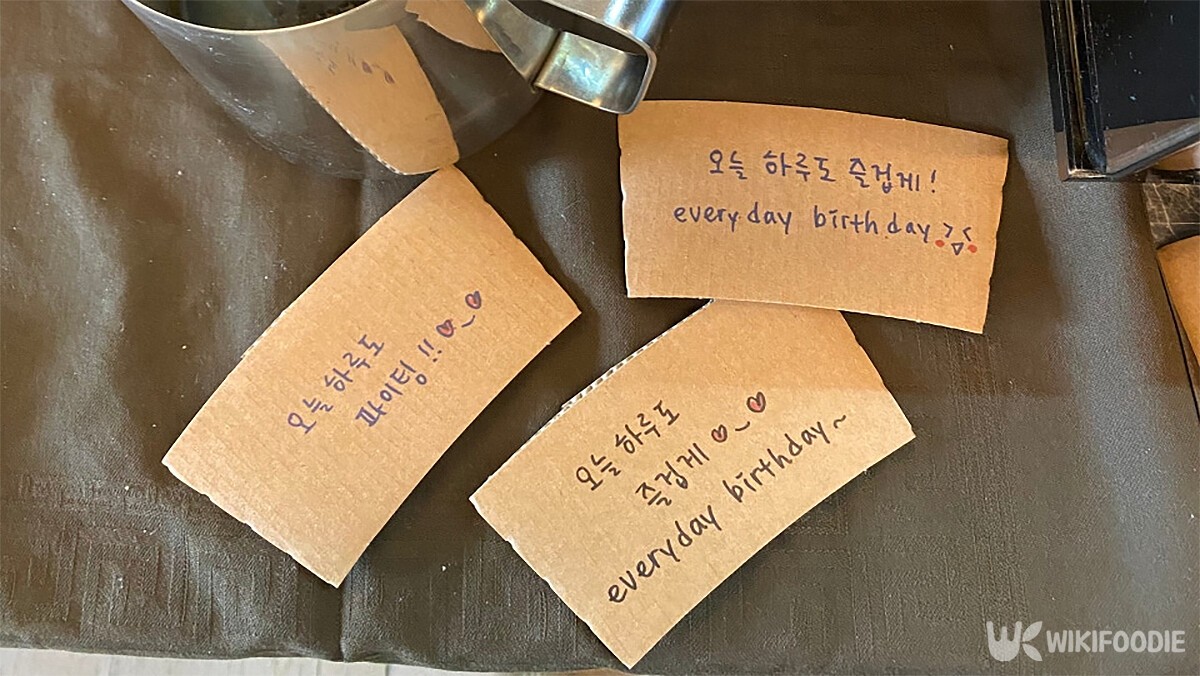 오늘 하루도
파이팅!!
오늘 하루도 즐겁게!
everyday birthday
오늘 하루도
즐겁게
everyday birthday~
WIKIFOODIE